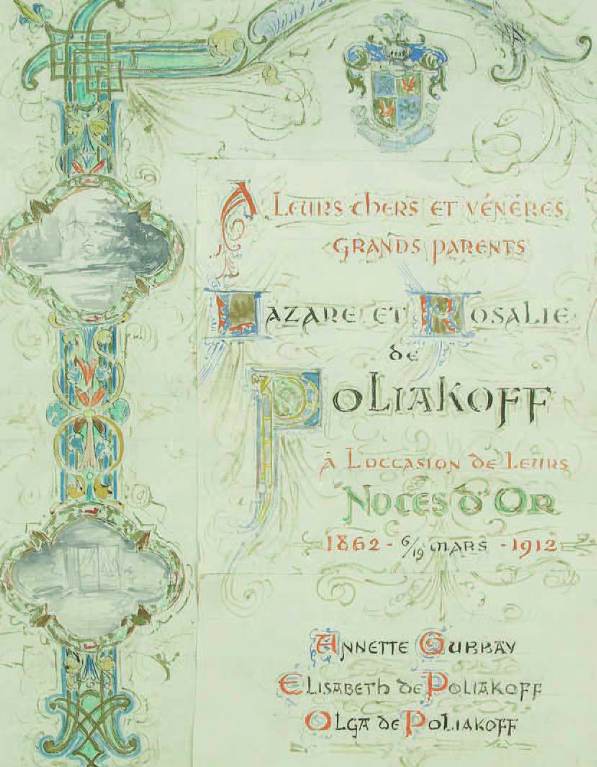 A Leurs chers et vénéres
grands parents
Lazare et Rosalie
de
Poliakoff
à l'occasion de leurs
Noces d'Or
1862 - 6/19 mars - 1912
Annette Gubbay
Elisabeth de Poliakoff
Olga de Poliakoff